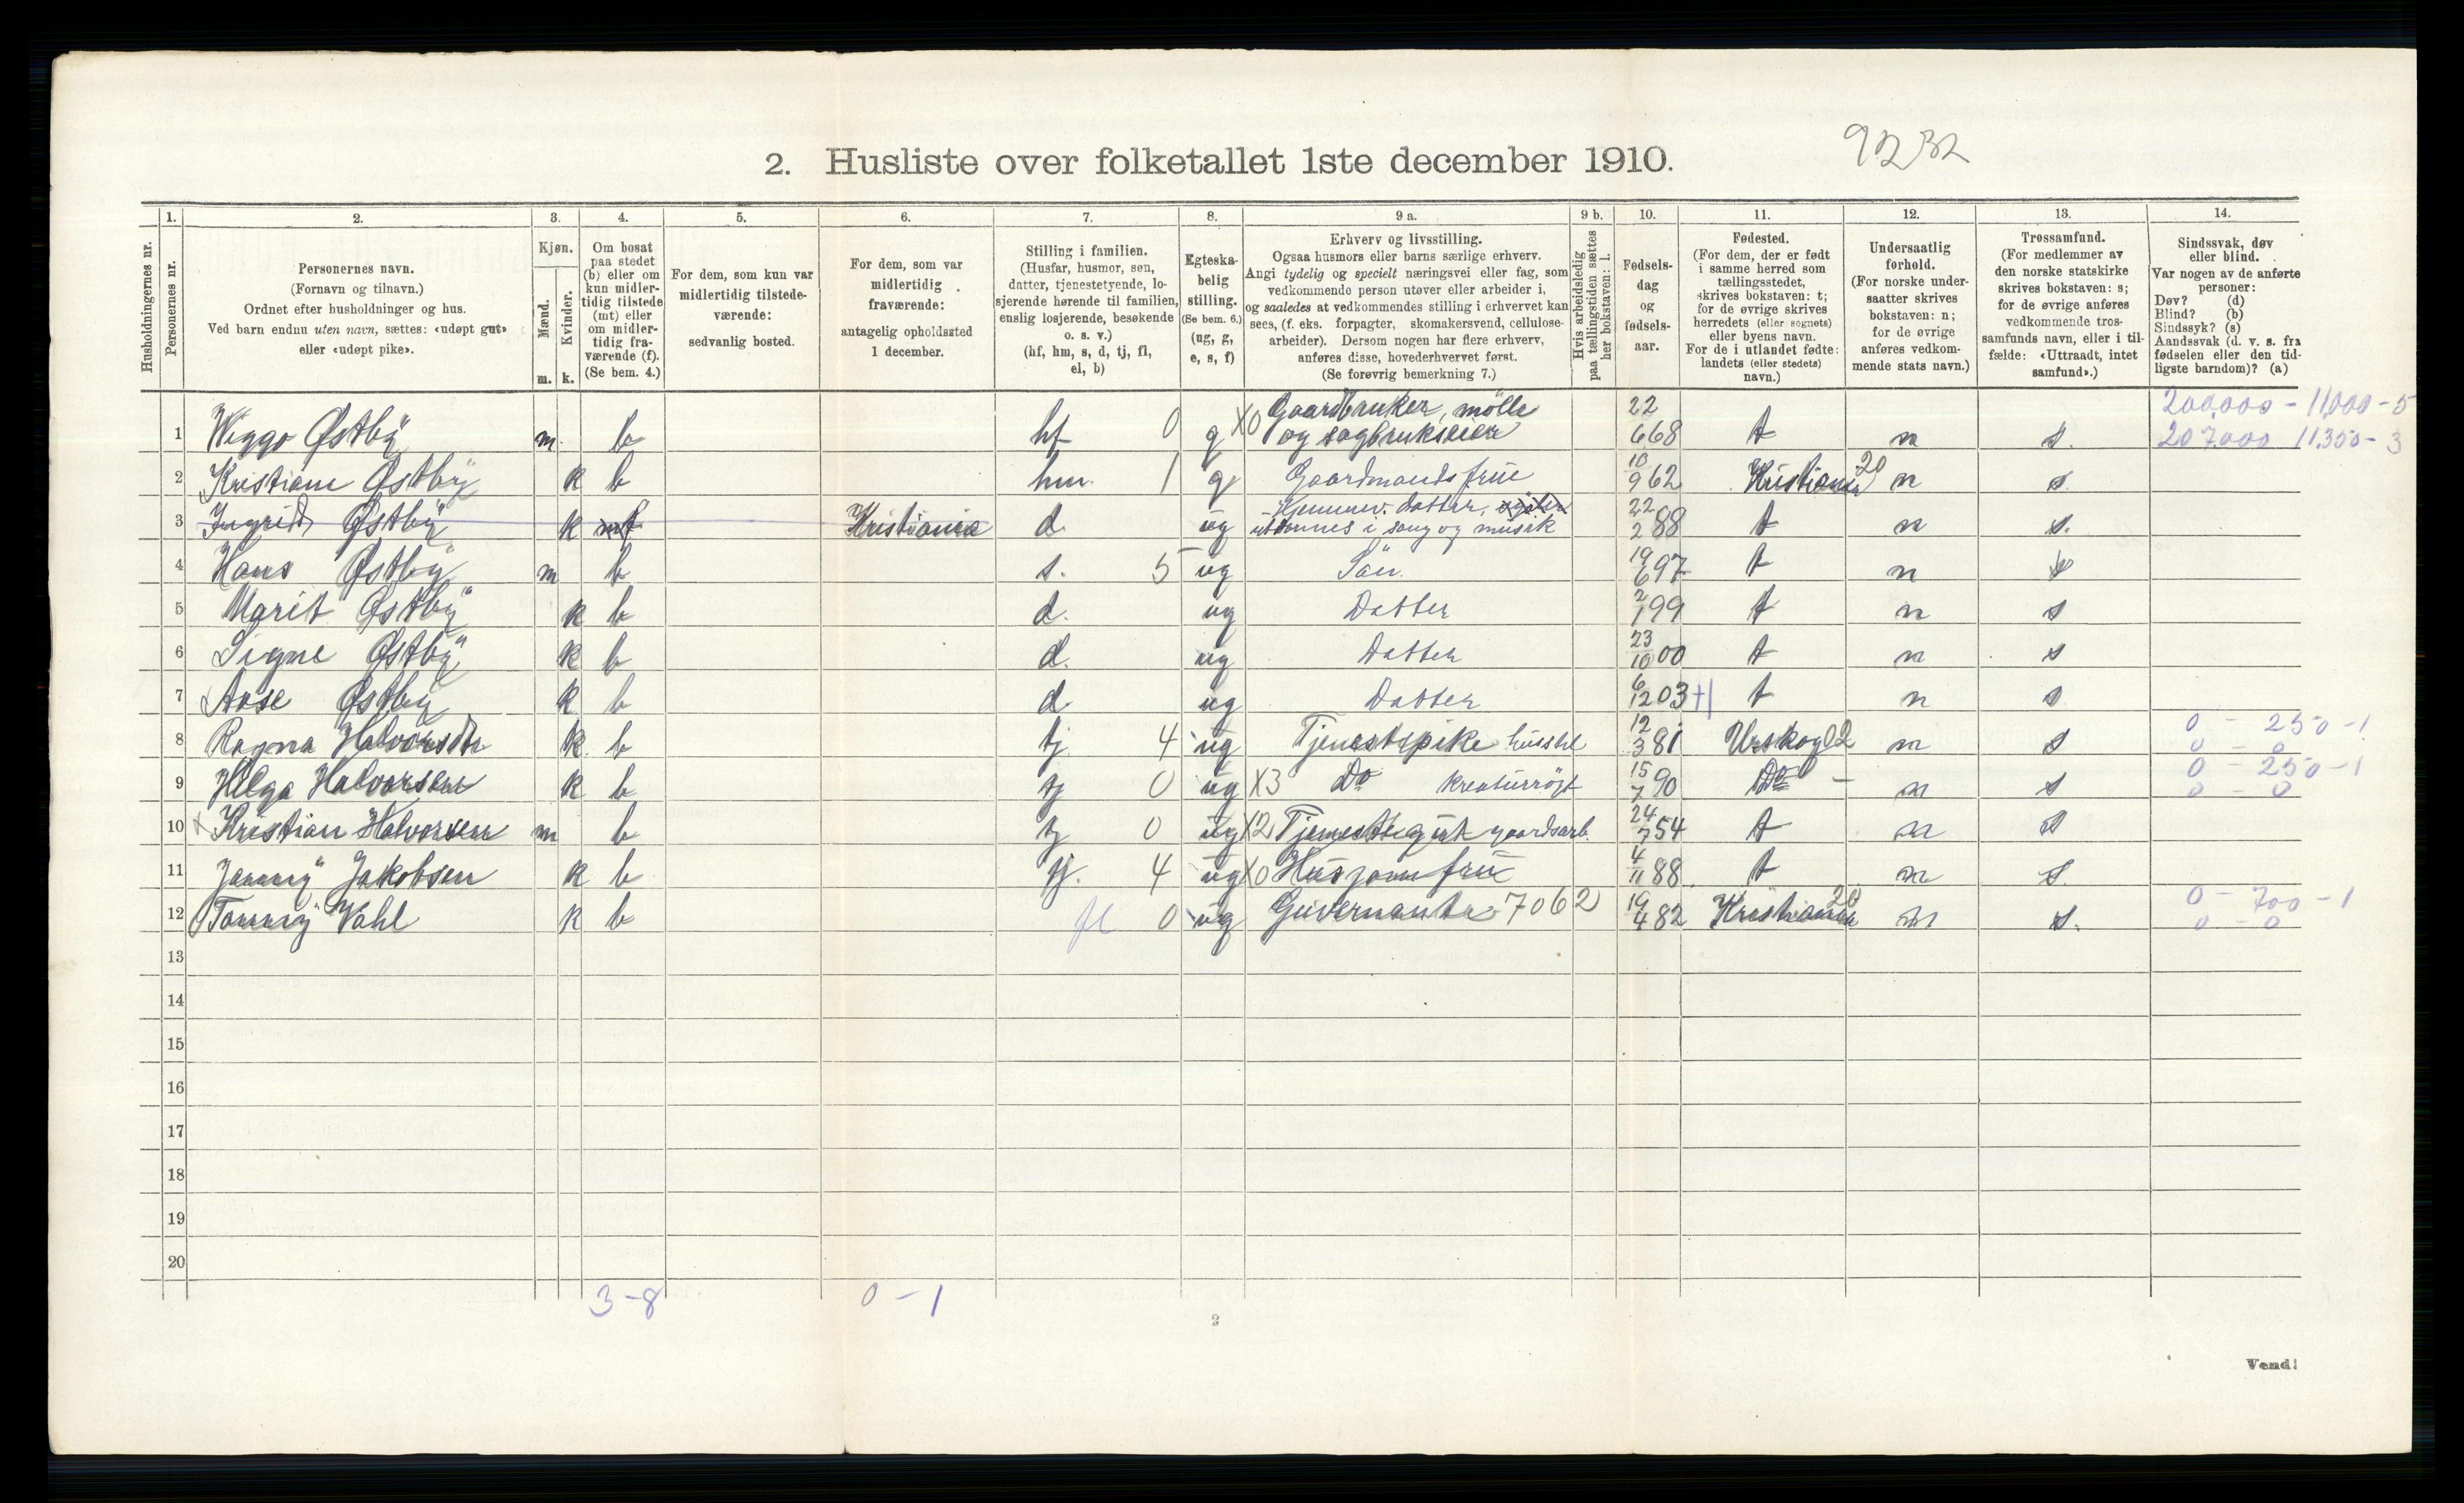 9232
2. Husliste over folketallet 1ste december 1910.
Husholdningernes nr.
1. Personernes nr.
2. Personernes navn.
(Fornavn og tilnavn.)
Ordnet efter husholdninger og hus.
Ved barn endnu uten navn, sættes: «udøpt gut»
eller «udøpt pike».
3. Kjøn.
Mænd. m.
Kvinder. k.
4. Om bosat
paa stedet
(b) eller om
kun midler-
tidig tilstede
(mt) eller
om midler-
tidig fra-
værende (f).
(Se bem. 4.)
5. For dem, som kun var
midlertidig tilstede-
værende:
sedvanlig bosted.
6. For dem, som var
midlertidig
fraværende:
antagelig opholdssted
1 december.
7. Stilling i familien.
(Husfar, husmor, søn,
datter, tjenestetyende, lo-
sjerende hørende til familien,
enslig losjerende, besøkende
o. s. v.)
(hf, hm, s, d, tj, fl,
el, b)
8. Egteska-
belig
stilling.
(Se bem. 6.)
(ug, g,
e, s, f)
9 a. Erhverv og livsstilling.
Ogsaa husmors eller barns særlige erhverv.
Angi tydelig og specielt næringsvei eller fag, som
vedkommende person utøver eller arbeider i,
og saaledes at vedkommendes stilling i erhvervet kan
sees, (f. eks. forpagter, skomakersvend, cellulose-
arbeider). Dersom nogen har flere erhverv,
anføres disse, hovederhvervet først.
(Se forøvrig bemerkning 7.)
9 b. Hvis arbeidsledig
paa tællingstiden sættes
her bokstaven: l.
10. Fødsels-
dag
og
fødsels-
aar.
11. Fødested.
(For dem, der er født
i samme herred som
tællingsstedet,
skrives bokstaven: t;
for de øvrige skrives
herredets (eller sognets)
eller byens navn.
For de i utlandet fødte:
landets (eller stedets)
navn.)
12. Undersaatlig
forhold.
(For norske under-
saatter skrives
bokstaven: n;
for de øvrige
anføres vedkom-
mende stats navn.)
13. Trossamfund.
(For medlemmer av
den norske statskirke
skrives bokstaven: s;
for de øvrige anføres
vedkommende tros-
samfunds navn, eller i til-
fælde: «Uttraadt, intet
samfund».)
14. Sindssvak, døv
eller blind.
Var nogen av de anførte
personer:
Døv? (d)
Blind? (b)
Sindssyk? (s)
Aandssvak (d. v. s. fra
fødselen eller den tid-
ligste barndom)? (a)
Gaardbruker, mølle 22 200,000 - 11,000 - 5
1 Wiggo Østby m. b hf 0 g X0 og sagbrukseier 6 68 t n s. 207,000 11,350 - 3
2 Kristiane Østby k b hm. 1 g Gaardmandsfrue 10/9 62 Kristiania 20 n s.
3 Ingrid Østby k f Kristiania d ug Hjemmev. datter, utdannes i sang og musik 22/2 88 t n s.
4 Hans Østby m b s. 5 ug Søn. 19/6 97 t n s
5 Marit Østby k b d. ug Datter 2/1 99 t n s
6 Signe Østby k b d. ug Datter 23/10 00 t n s
7 Aase Østby k b d ug Datter 6/12 03 +1 t n s
8 Ragna Halvorsen k b tj 4 ug Tjenestepike husstel 12/3 81 Urskog 02 n s 0 - 250 - 1
0 - 0
9 Helga Halvorsen k b tj 0 ug X3 Do kreaturrøgt 15/7 90 Do - n s 0 - 250 - 1
0 - 0
10 Kristian Halvorsen m b tj 0 ug X2 Tjenestegut gaardsarb. 24/7 54 t n s
11 Jenny Jakobsen k b tj. 4 ug X0 Husjomfru 4/11 88 t n s.
12 Tommy Vahl k b fl 0 ug Guvernante 7062 19/4 82 Kristiania 20 n s. 0 - 700 - 1
0 - 0
13
14
15
16
17
18
19
20
3 - 8 0 - 1
2
Vend!